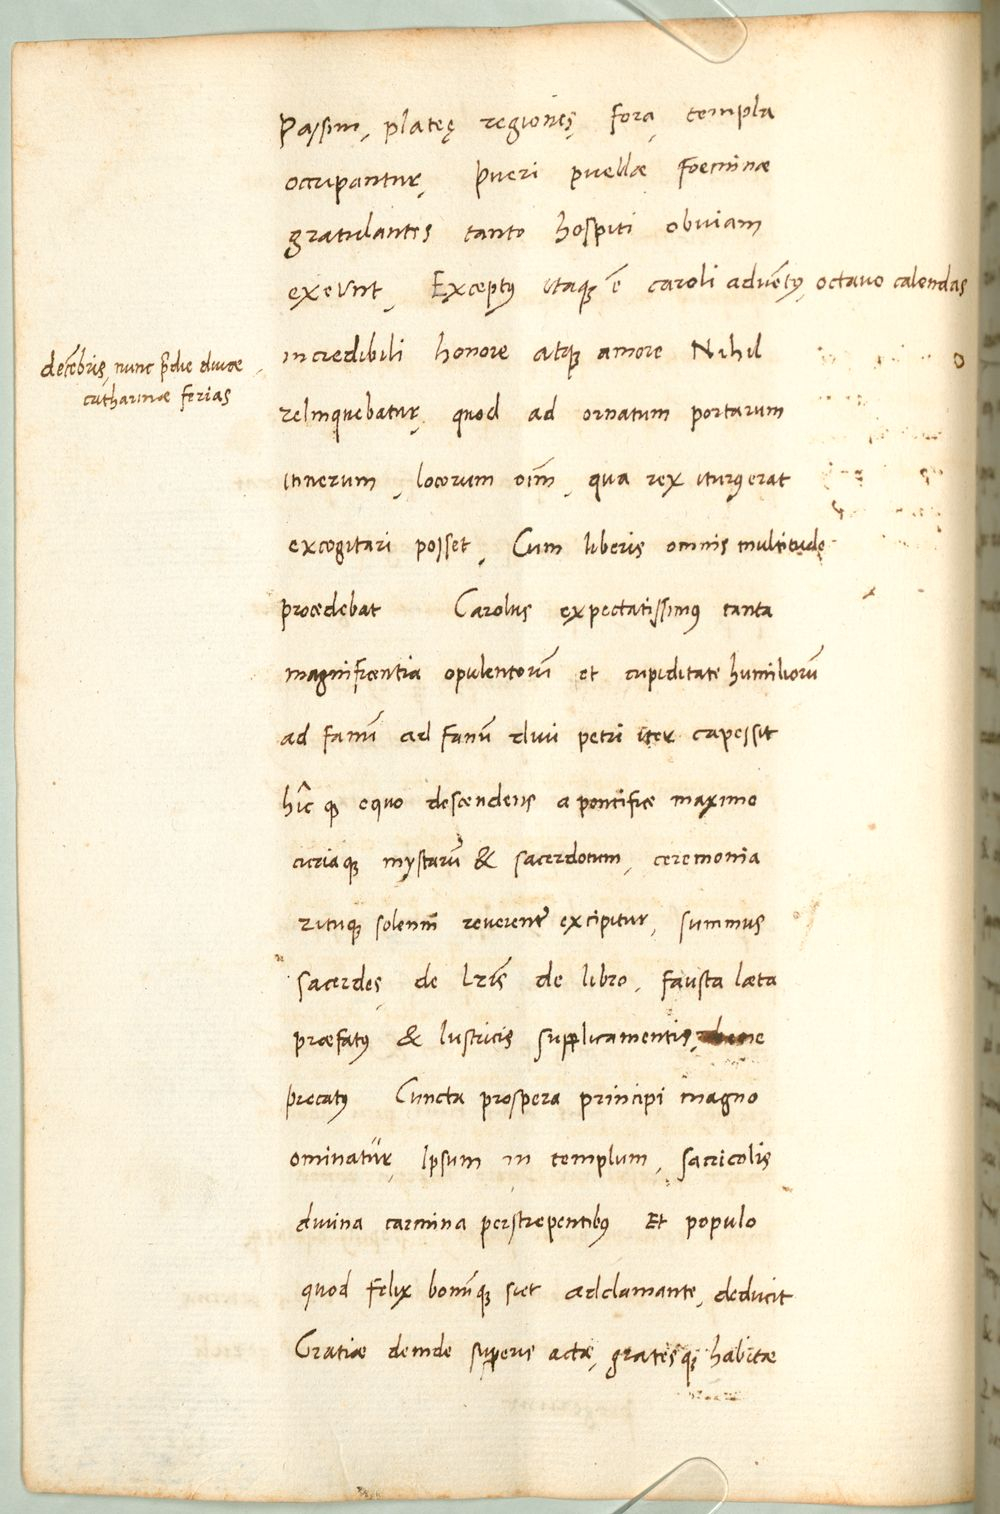 Passim, plateę regiones, fora, templa
occupantur, Pueri puellæ Foeminæ
gratulantes tanto hospiti obviam
exeunt, Exceptꝰ itaqꝫ ē caroli advētꝰ, octavo calendas
decēbris, nunc p̄die divæ
catharinæ ferias
incredibili honore atqꝫ amore Nihil
relinquebatur, quod ad ornatum portarum
itinerum, locorum oīm, qua rex iturꝰ erat
excogitari posset, Cum liberis omnis multitudo
procedebat Carolus expectatissimꝰ tanta
magnificentia opulentorū et cupiditate humiliorū
ad fanū ad fanū divi petri iter capessit
hīc qꝫ equo descendens a pontifice maximo
curiaqꝫ mystarū & sacerdotum, ceremonia
rituqꝫ solenni reverent̄ excipitur, summus
sacerdos, de Lr̄is de libro, fausta læta
præfatꝰ & lustricis supplicamentis, bene
precatꝰ Cuncta prospera principi magno
ominatur, Ipsum in templum, sacricolis
divina carmina perstrepentibꝰ Et populo
quod felix bonūqꝫ siet adclamante, deducit
Gratiæ deinde superis actæ, gratesqꝫ habitæ